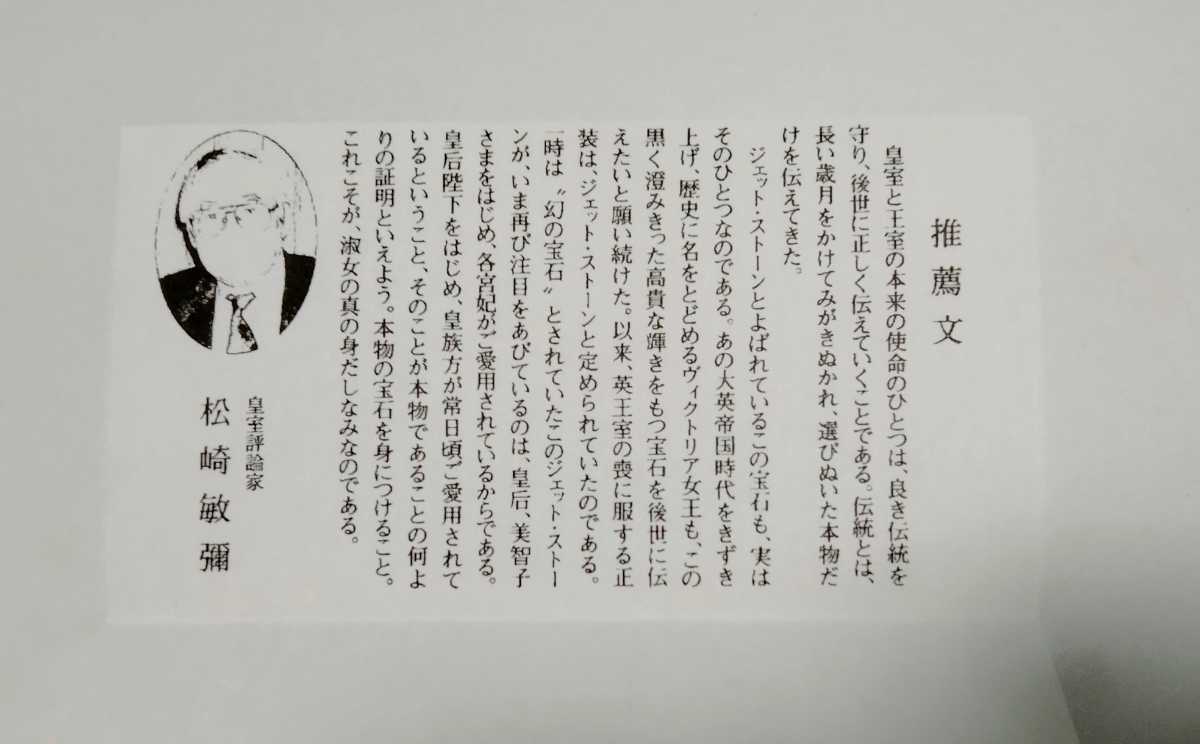 推薦文
皇室と王室の本来の使命のひとつは、良き伝統を
守り、後世に正しく伝えていくことである。伝統とは、
長い歳月をかけてみがきぬかれ、選びぬいた本物だ
けを伝えてきた。
ジェット・ストーンとよばれているこの宝石も、実は
そのひとつなのである。あの大英帝国時代をきずき
上げ、歴史に名をとどめるヴィクトリア女王も、この
黒く澄みきった高貴な輝きをもつ宝石を後世に伝
えたいと願い続けた。以来、英王室の喪に服する正
装は、ジェット・ストーンと定められていたのである。
一時は〝幻の宝石〟とされていたこのジェット・ストー
ンが、いま再び注目をあびているのは、皇后、美智子
さまをはじめ、各宮妃がご愛用されているからである。
皇后陛下をはじめ、皇族方が常日頃ご愛用されて
いるということ、そのことが本物であることの何よ
りの証明といえよう。本物の宝石を身につけること。
これこそが、淑女の真の身だしなみなのである。
皇室評論家
松崎敏彌